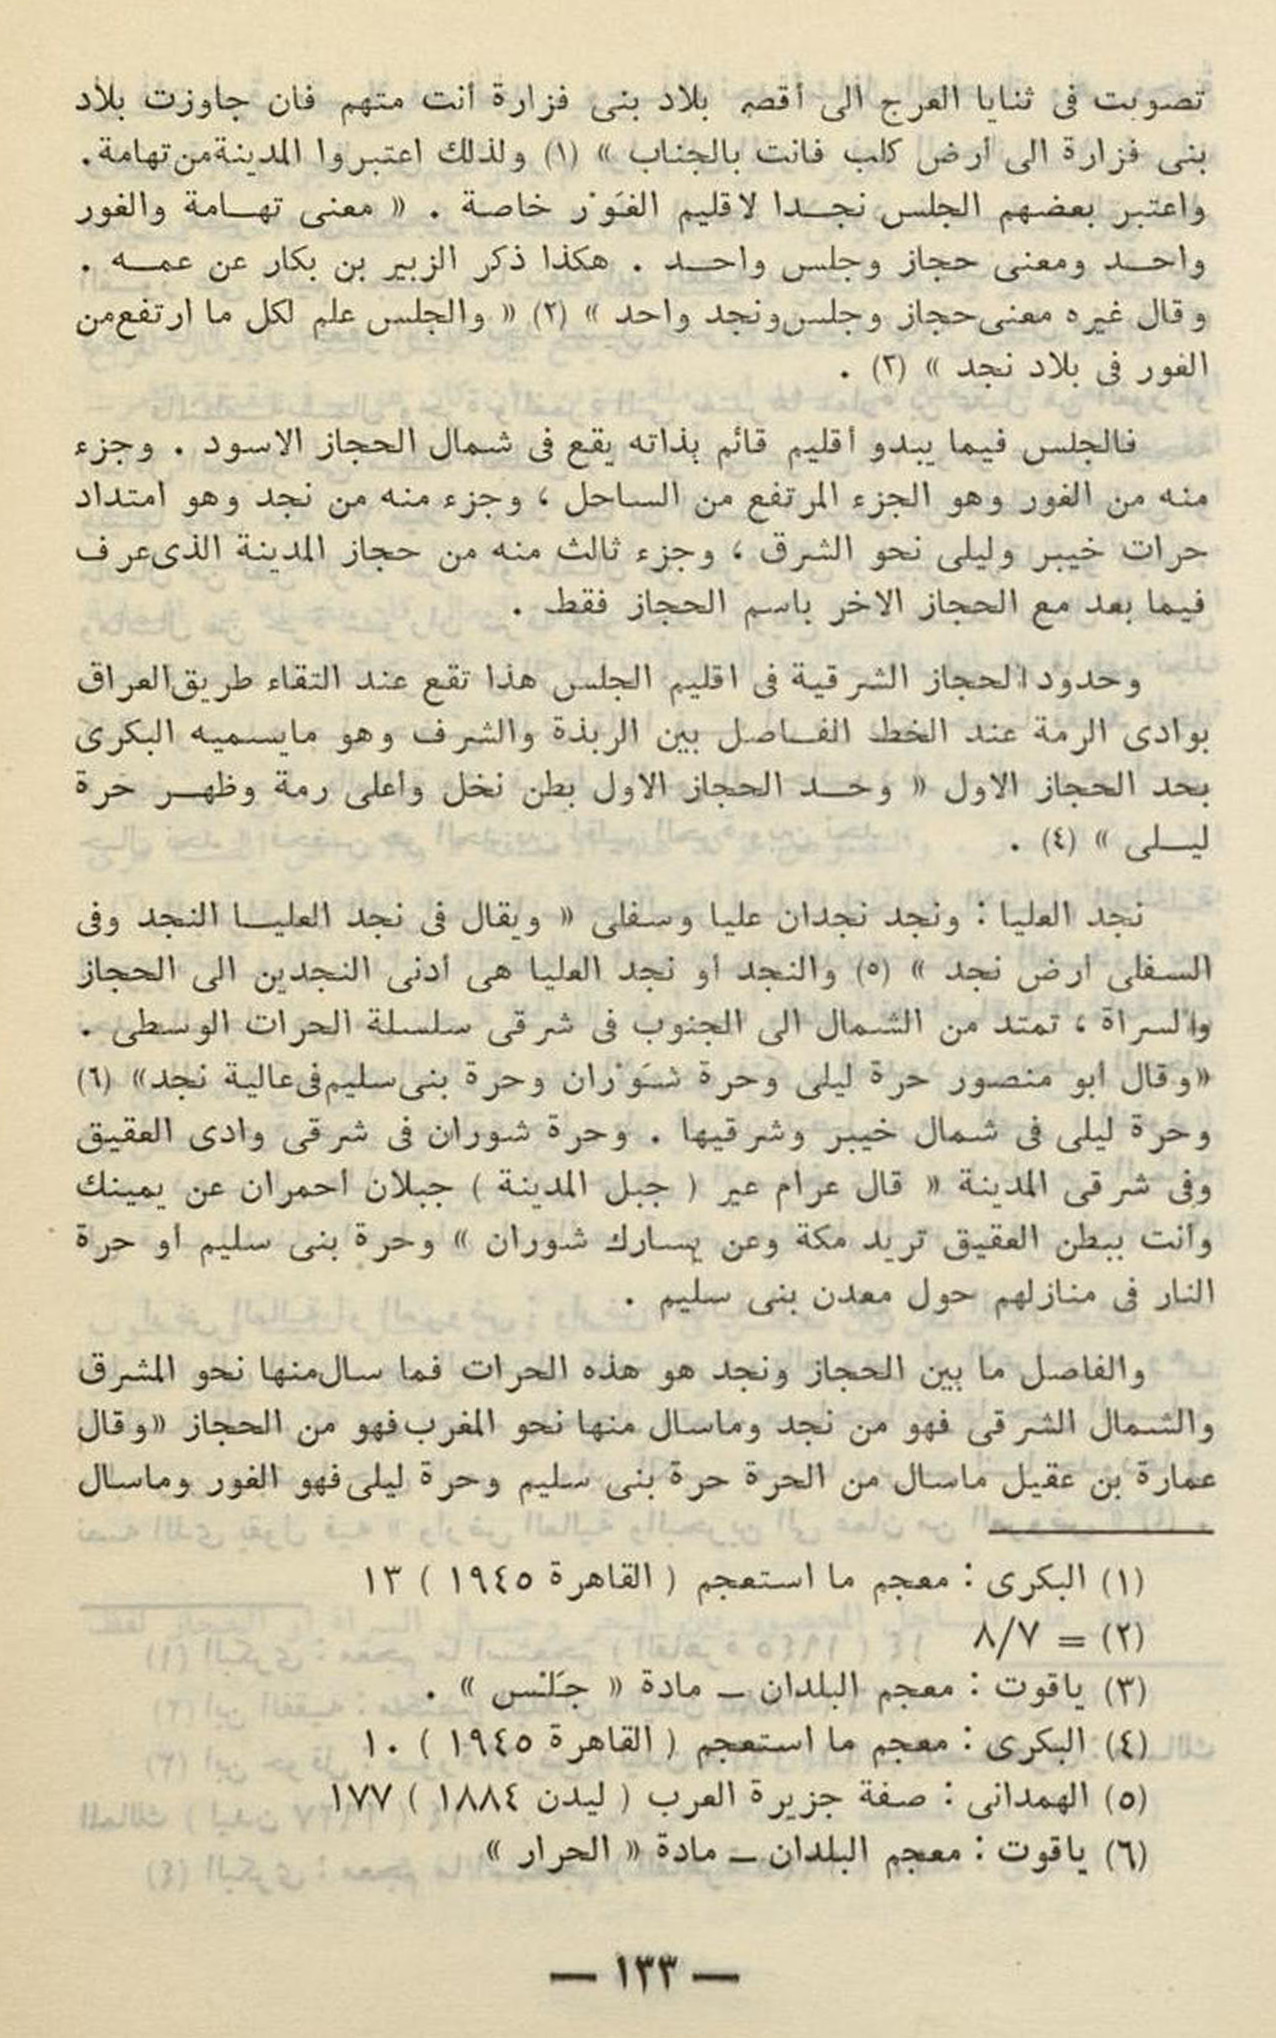 تصوبت فى ثنايا العرج الى أقصى بلاد بنى فزارة أنت متهم فان جاوزت بلاد
بنى فزارة الى أرض كلب فانت بالجناب » (١) ولذلك اعتبروا المدينة من تهامة .
واعتبر بعضهم الجلس نجـدا لاقليم الغَوْر خاصة . « معنى تهـامة والغور
واحـد ومعنى حجاز وجلس واحـد . هكذا ذكر الزبير بن بكار عن عمـه .
وقال غيره معنى حجاز وجلس ونجد واحد » (٢) « والجلس علم لكل ما ارتفع من
الغور فى بلاد نجد » (٣) .
فالجلس فيما يبدو أقليم قائم بذاته يقع فى شمال الحجاز الاسود . وجزء
منه من الغور وهو الجزء المرتفع من الساحل ، وجزء منه من نجد وهو امتداد
حرات خيبر وليلى نحو الشرق ، وجزء ثالث منه من حجاز المدينة الذى عرف
فيما بعد مع الحجاز الاخر باسم الحجاز فقط .
وحدود الحجاز الشرقية فى اقليم الجلس هذا تقع عند التقاء طريق العراق
بوادى الرمة عند الخط الفـاصل بين الربذة والشرف وهو مايسميه البكرى
بحد الحجاز الاول « وحـد الحجاز الاول بطن نخل وأعلى رمة وظهـر حرة
ليـلى » (٤) .
نجد العليا : ونجد نجدان عليا وسفلى « ويقال فى نجد العليـا النجد وفى
السفلى أرض نجد » (٥) والنجد أو نجد العليا هى أدنى النجدين الى الحجاز
والسراة ، تمتد من الشمال الى الجنوب فى شرقى سلسلة الحرات الوسطى .
«وقال أبو منصور حرة ليلى وحرة شَوْران وحرة بنى سليم فى عالية نجد» (٦)
وحرة ليلى فى شمال خيبر وشرقيها . وحرة شوران فى شرقى وادى العقيق
وفى شرقى المدينة « قال عرام عير ( جبل المدينة ) جبلان أحمران عن يمينك
وأنت ببطن العقيق تريد مكة وعن يسارك شوران » وحرة بنى سليم أو حرة
النار فى منازلهم حول معدن بنى سليم .
والفاصل ما بين الحجاز ونجد هو هذه الحرات فما سال منها نحو المشرق
والشمال الشرقى فهو من نجد وماسال منها نحو المغرب فهو من الحجاز «وقال
عمارة بن عقيل ماسال من الحرة حرة بنى سليم وحرة ليلى فهو الغور وماسال
(١) البكرى : معجم ما استعجم ( القاهرة ١٩٤٥ ) ١٣
(٢) = ٨/٧
(٣) ياقوت : معجم البلدان ــ مادة « جَلْس » .
(٤) البكرى : معجم ما استعجم ( القاهرة ١٩٤٥ ) ١٠
(٥) الهمدانى : صفة جزيرة العرب ( ليدن ١٨٨٤ ) ١٧٧
(٦) ياقوت : معجم البلدان ــ مادة « الحرار »
— ١٣٣ —